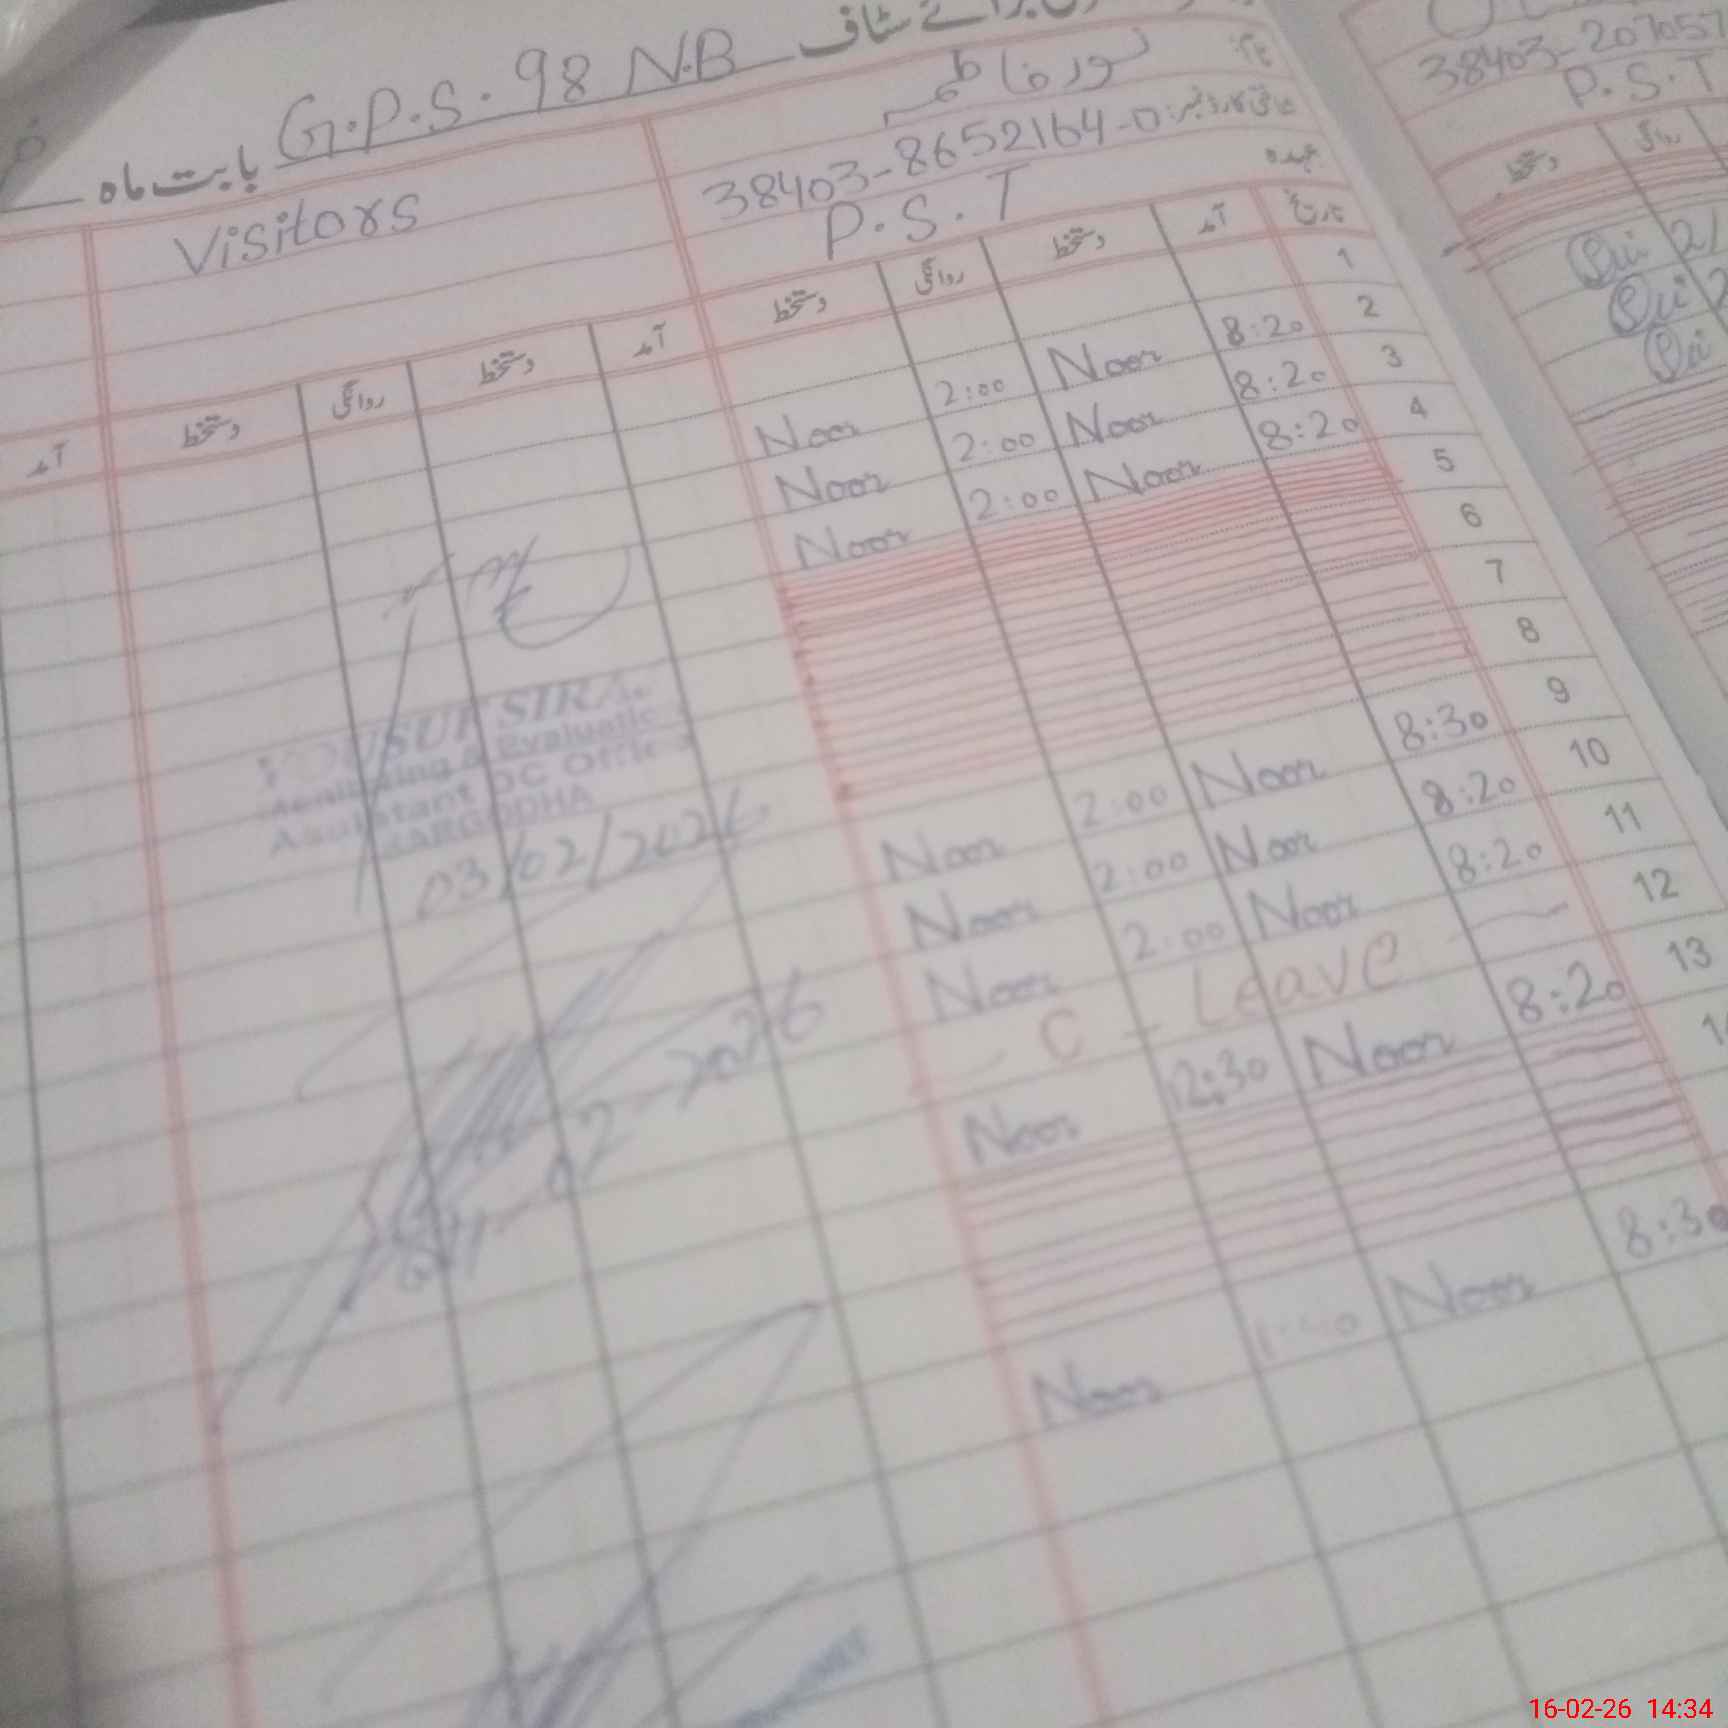 برائے سٹاف G.P.S. 98 N.B بابت ماہ
نام: نور فاطمہ
شناختی کارڈ نمبر: 38403-8652164-0
عہدہ P.S.T
Visitors
38403-207057
P.S.T
تاریخ آمد دستخط روانگی دستخط
آمد دستخط روانگی دستخط
آمد
روانگی دستخط
1
2 8:20 Noor 2:00 Noor
3 8:20 Noor 2:00 Noor
4 8:20 Noor 2:00 Noor
5
6
7
8
9 8:30 Noor 2:00 Noor
10 8:20 Noor 2:00 Noor
11 8:20 Noor 2:00 Noor
12 C - Leave
13 8:20 Noor 12:30 Noor
8:30 Noor Noor
Assistant DC Office
SARGODHA
03/02/2026
02-2026
16-02-26 14:34